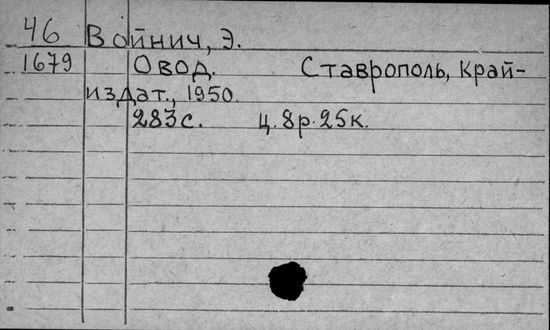 46 Войнич, Э.
1679 Овод. Ставрополь, край-
издат., 1950.
283с. ц. 8р. 25к.